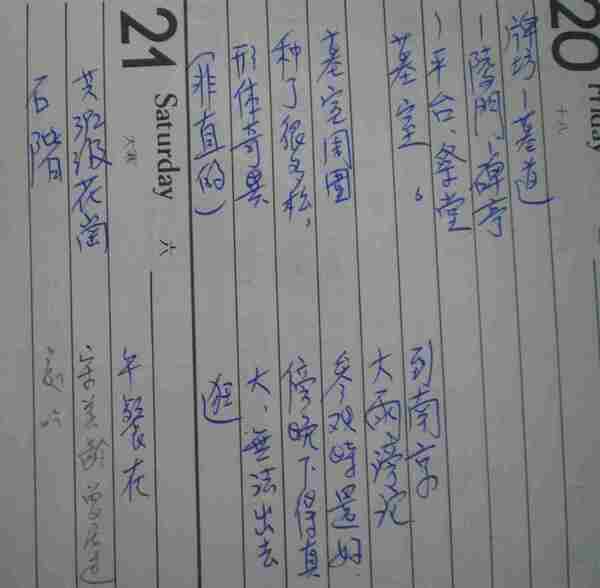 20 Friday
十八
牌坊—墓道
—陵門、碑亭
—平台、祭堂
墓室。
墓室周圍
種了很多松,
形体奇異
(非直的)
到南京
大雨滂沱
參观時還好
傍晚下得真
大,無法出去
逛
21 Saturday 六
大寒
共392級花崗
石階
午餐在
宋美齡曾住过